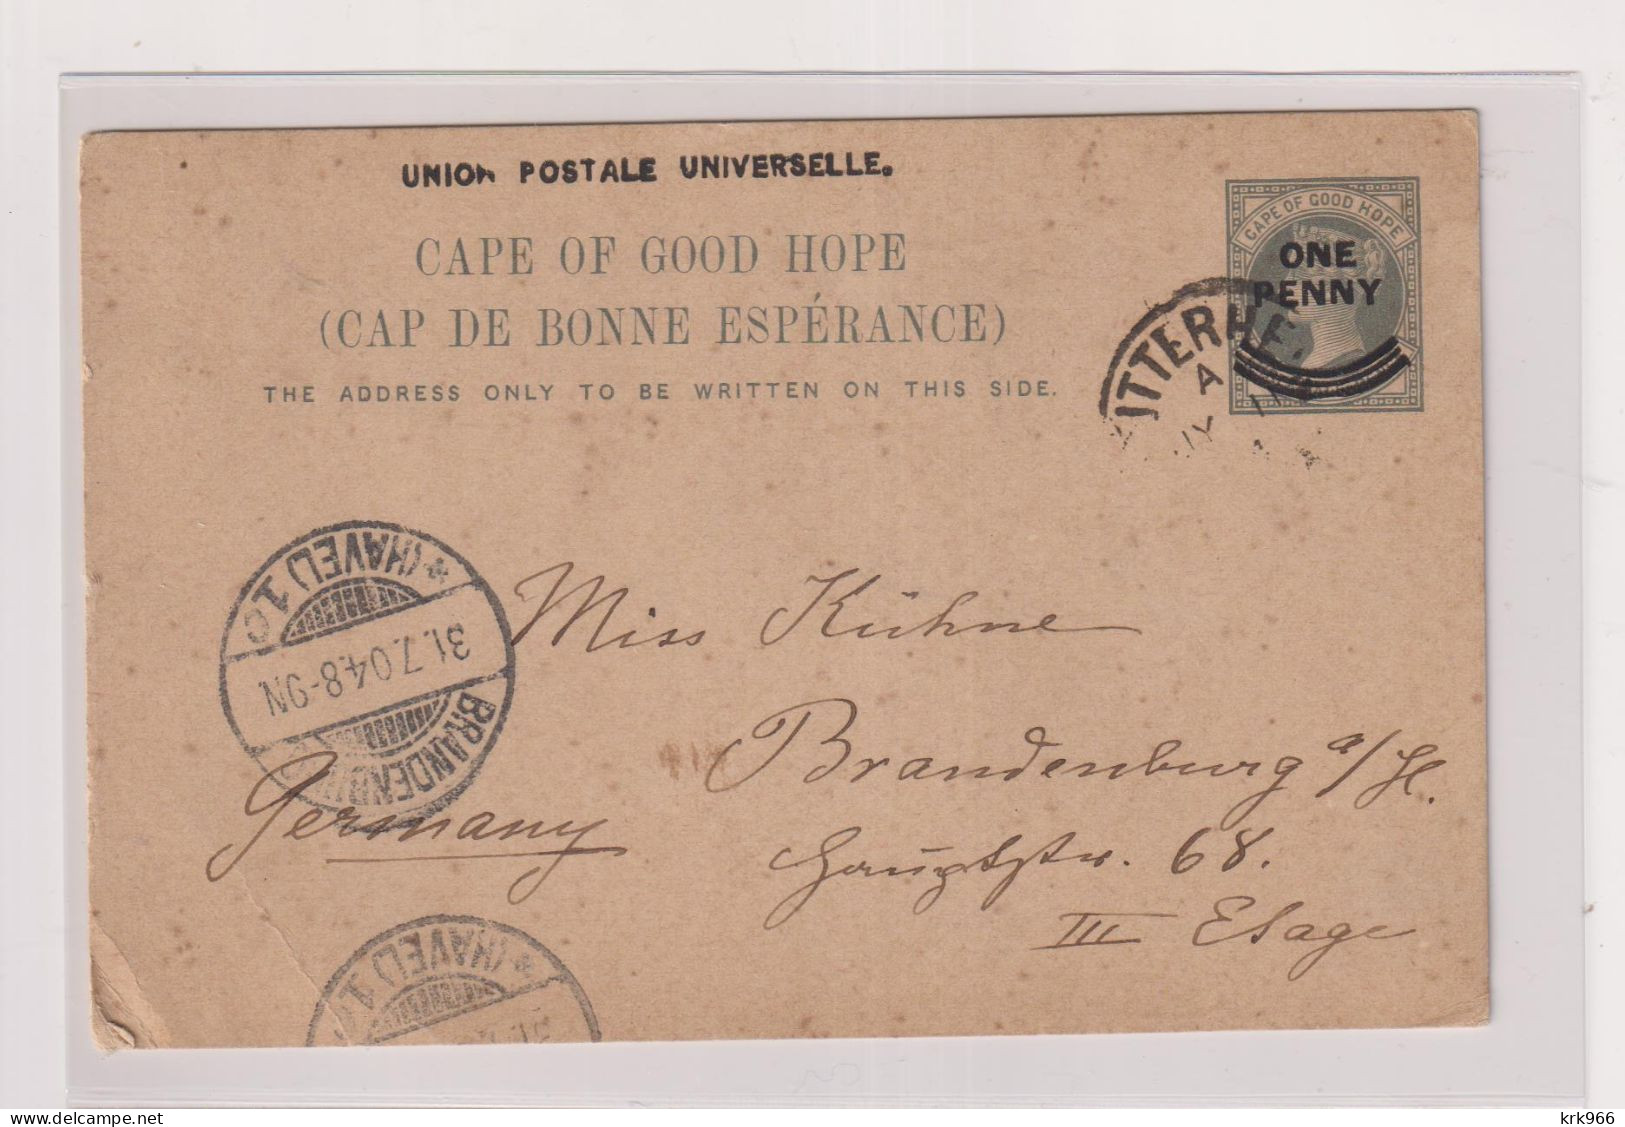 UNION POSTALE UNIVERSELLE.
CAPE OF GOOD HOPE
(CAP DE BONNE ESPÉRANCE)
THE ADDRESS ONLY TO BE WRITTEN ON THIS SIDE.
CAPE OF GOOD HOPE
ONE
PENNY
ITTERHF.
A
JY 11
* (HAVEL) 1 c
31.7.04.8-9N
BRANDENBURG
Miss Kühne
Brandenburg a/H.
Germany
Hauptstr. 68.
III Etage
* (HAVEL) 1
krk966